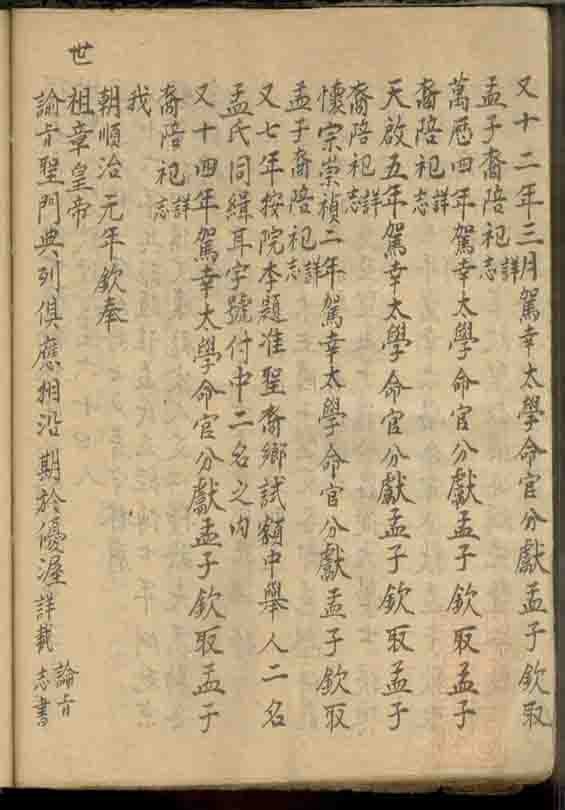 又十二年三月駕幸太學命官分獻孟子欽取
孟子裔陪祀詳志
萬厯四年駕幸太學命官分獻孟子欽取孟子
裔陪祀詳志
天啟五年駕幸太學命官分獻孟子欽取孟子
裔陪祀詳志
懷宗崇禎二年駕幸太學命官分獻孟子欽取
孟子裔陪祀詳志
又七年按院李題准聖裔鄉試額中舉人二名
孟氏同緝耳字號付中二名之內
又十四年駕幸太學命官分獻孟子欽取孟子
裔陪祀詳志
我
朝順治元年欽奉
世祖章皇帝
諭旨聖門典列俱應相沿期於優渥詳載諭旨志書